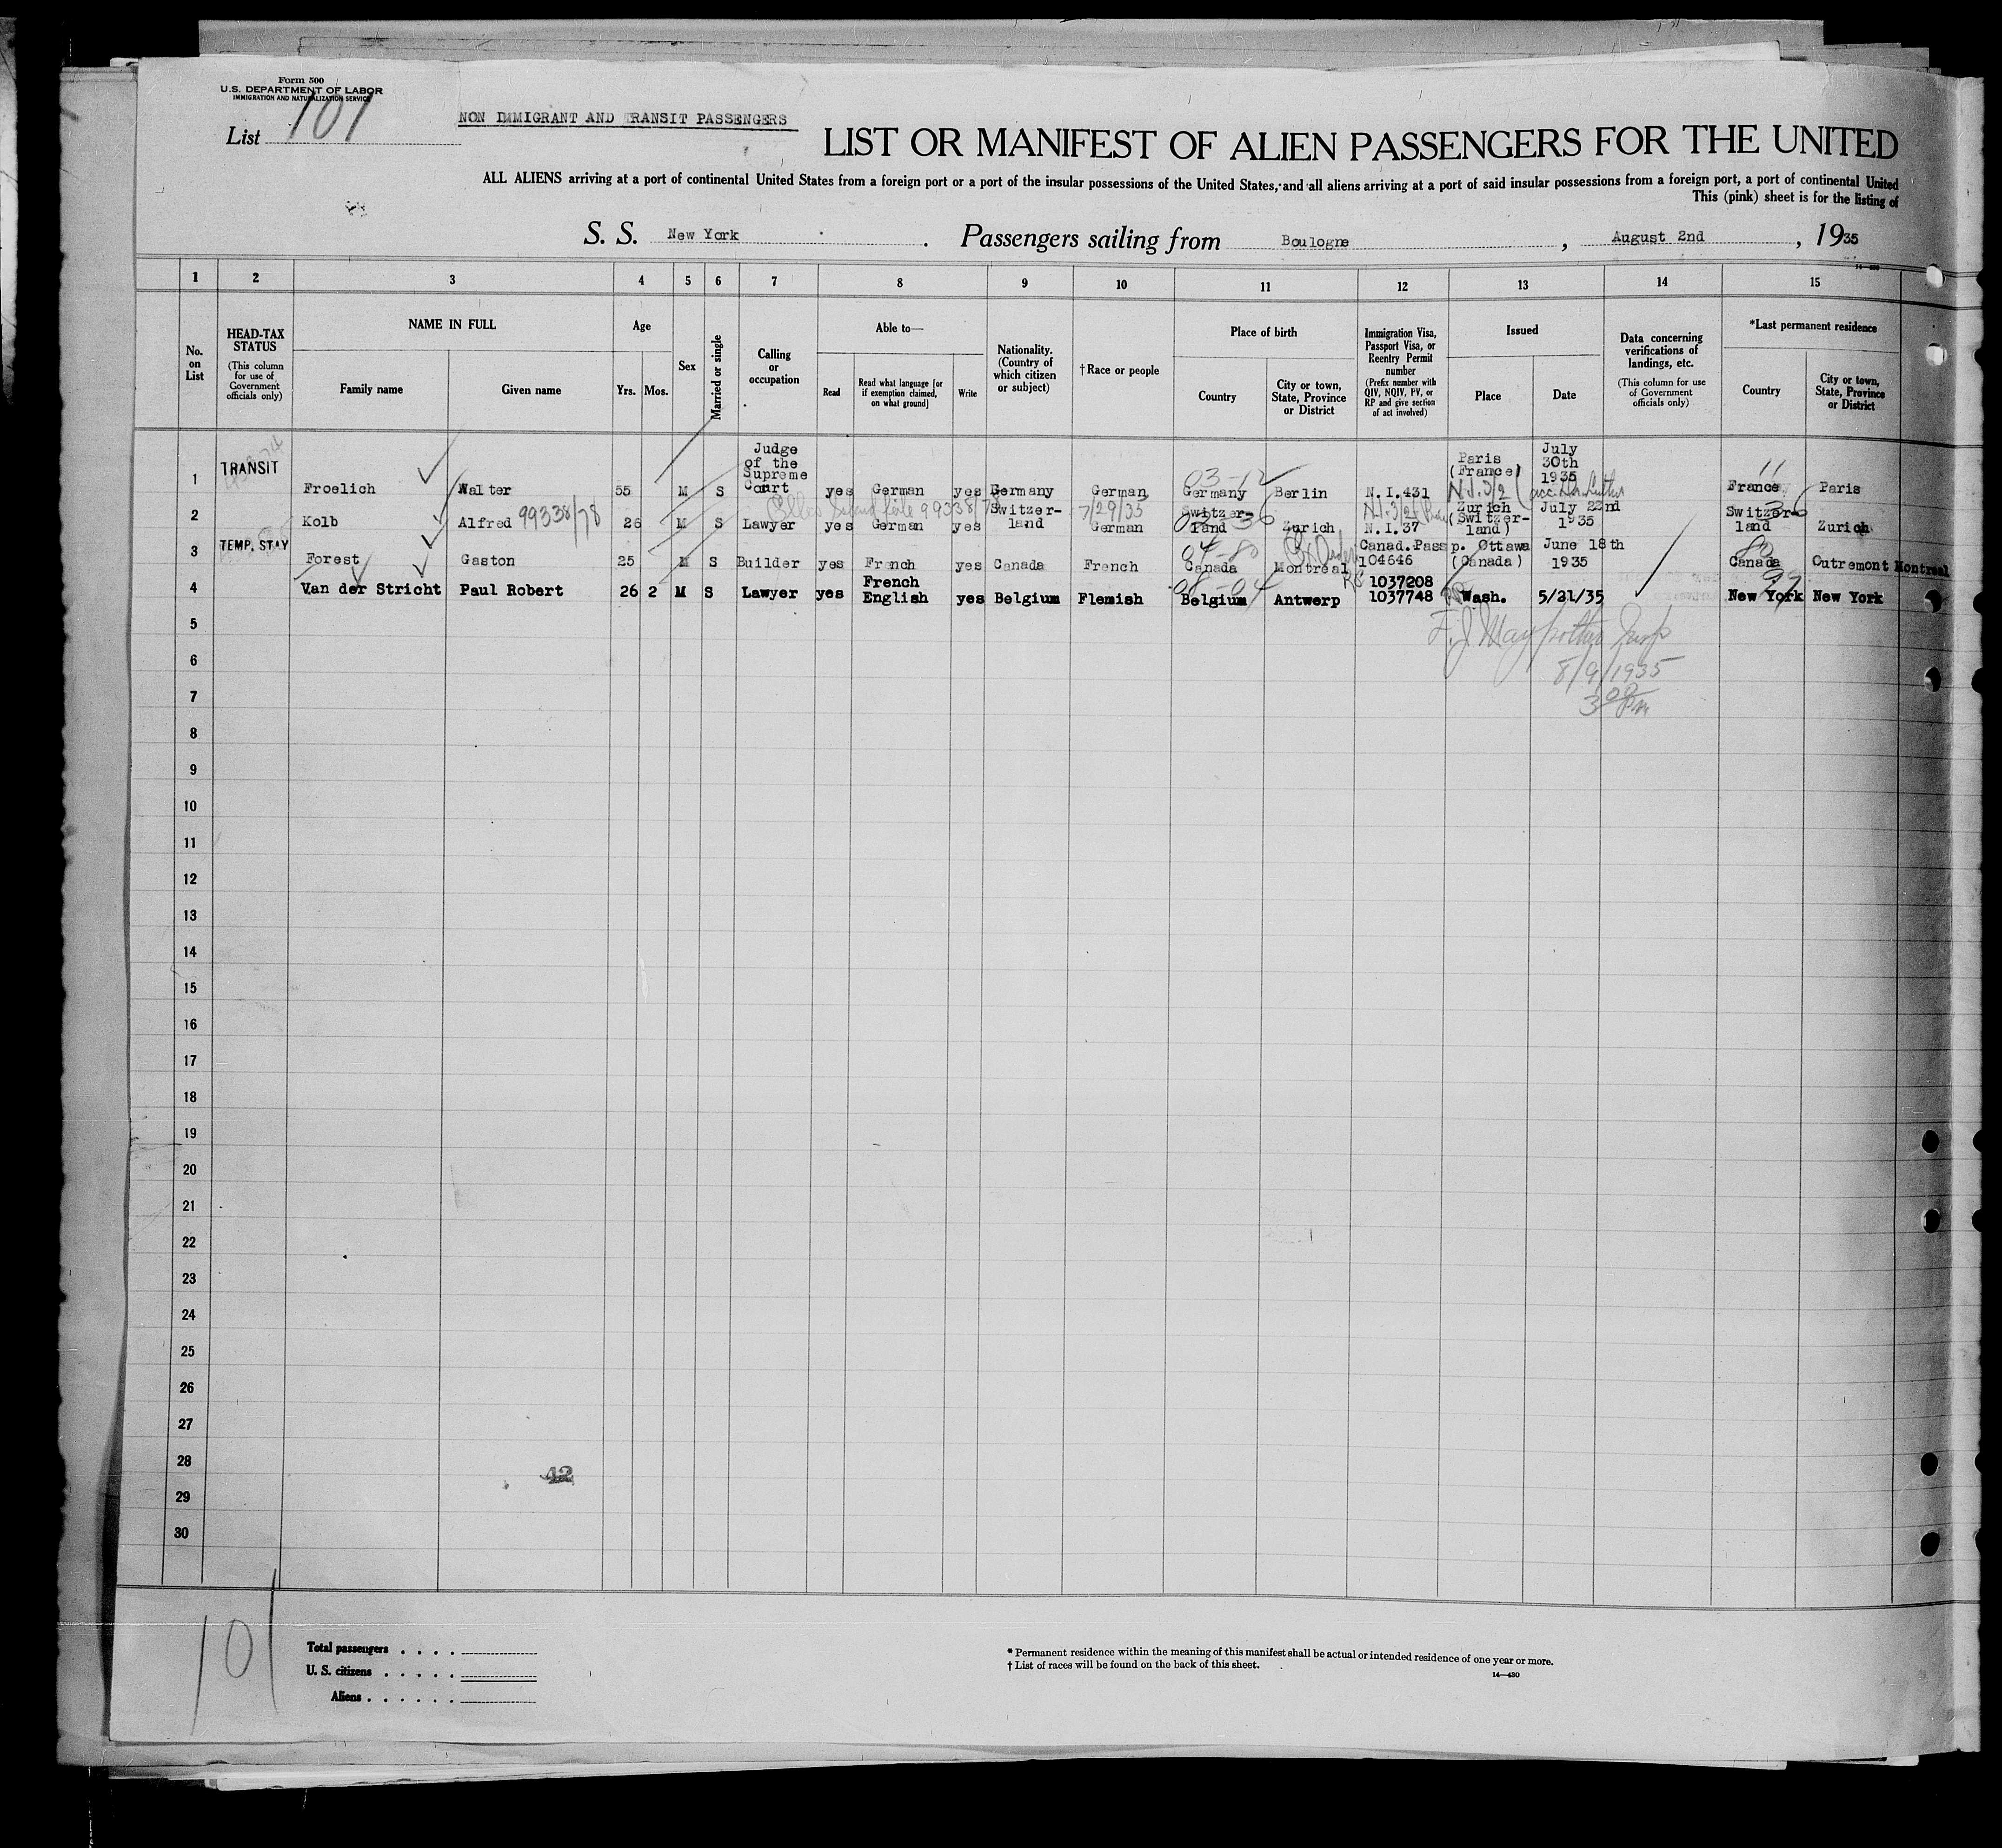 Form 500
U.S. DEPARTMENT OF LABOR
IMMIGRATION AND NATURALIZATION SERVICE
List 101
NON IMMIGRANT AND TRANSIT PASSENGERS
LIST OR MANIFEST OF ALIEN PASSENGERS FOR THE UNITED
ALL ALIENS arriving at a port of continental United States from a foreign port or a port of the insular possessions of the United States, and all aliens arriving at a port of said insular possessions from a foreign port, a port of continental United
This (pink) sheet is for the listing of
S. S. New York . Passengers sailing from Boulogne , August 2nd , 1935
1 2 3 4 5 6 7 8 9 10 11 12 13 14 15
No. on List
HEAD-TAX STATUS
(This column for use of Government officials only)
NAME IN FULL
Family name Given name
Age
Yrs. Mos.
Sex
Married or single
Calling or occupation
Able to—
Read Read what language [or if exemption claimed, on what ground] Write
Nationality. (Country of which citizen or subject)
†Race or people
Place of birth
Country City or town, State, Province or District
Immigration Visa, Passport Visa, or Reentry Permit number
(Prefix number with QIV, NQIV, PV, or RP and give section of act involved)
Issued
Place Date
Data concerning verifications of landings, etc.
(This column for use of Government officials only)
*Last permanent residence
Country City or town, State, Province or District
1 TRANSIT Froelich Walter 55 M S Judge of the Supreme Court yes German yes Germany German 03-12 Germany Berlin N.I.431 Paris (France) N.I.3/2 July 30th 1935 11 France Paris
Ellis Island file 99338/78 7/29/35
2 Kolb Alfred 99338/78 26 M S Lawyer yes German yes Switzer-land German Switzer-land Zurich N.I.37 Zurich (Switzer-land) July 22nd 1935 Switzer-land Zurich
3 TEMP. STAY Forest Gaston 25 M S Builder yes French yes Canada French 04-80 Canada Montreal Canad. Passp. 104646 Ottawa (Canada) June 18th 1935 80 Canada Outremont Montreal
4 Van der Stricht Paul Robert 26 2 M S Lawyer yes French English yes Belgium Flemish 08-04 Belgium Antwerp RP 1037208 1037748 Wash. 5/21/35 New York New York
5
8/9/1935
6
3 00 Pm
7
8
9
10
11
12
13
14
15
16
17
18
19
20
21
22
23
24
25
26
27
28
42
29
30
101
Total passengers . . . .
U. S. citizens . . . . .
Aliens . . . . . .
* Permanent residence within the meaning of this manifest shall be actual or intended residence of one year or more.
† List of races will be found on the back of this sheet.
14—430